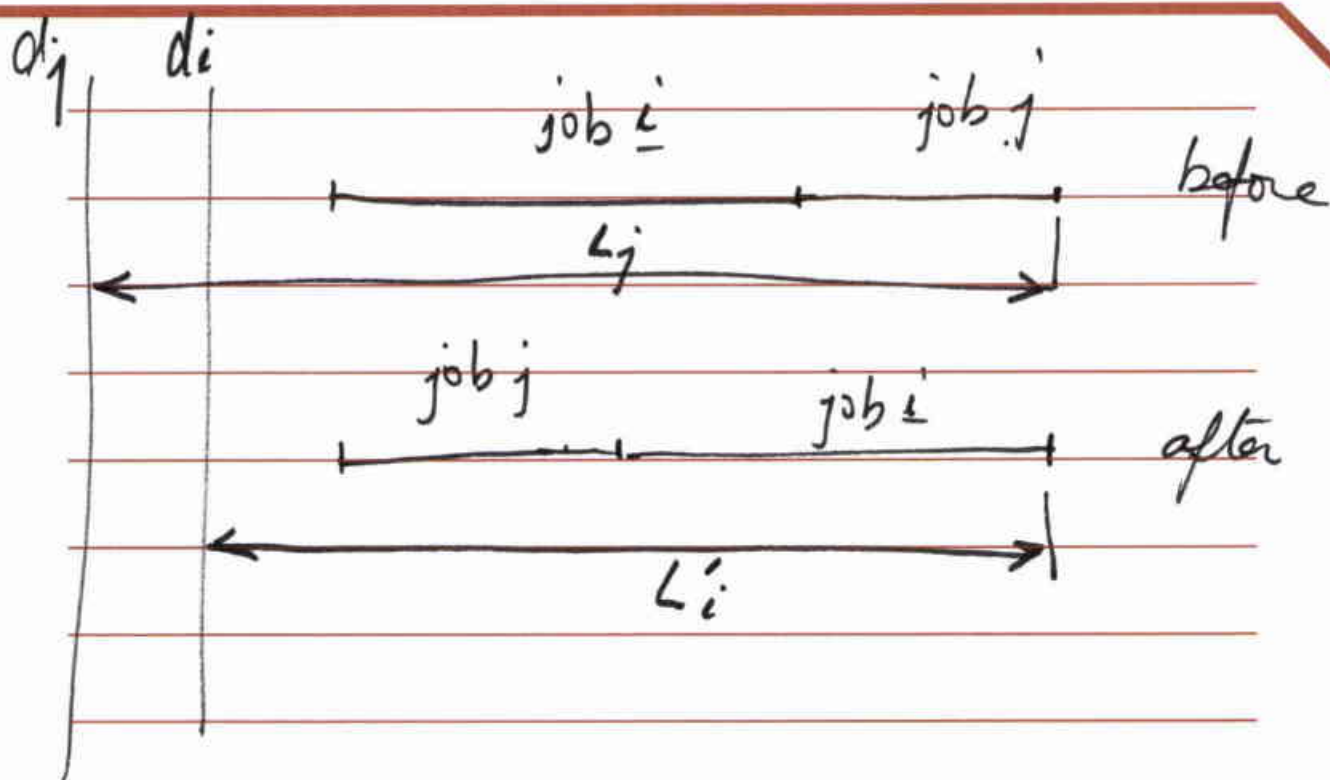 dj di
job i job j
before
Lj
job j job i
after
L'i